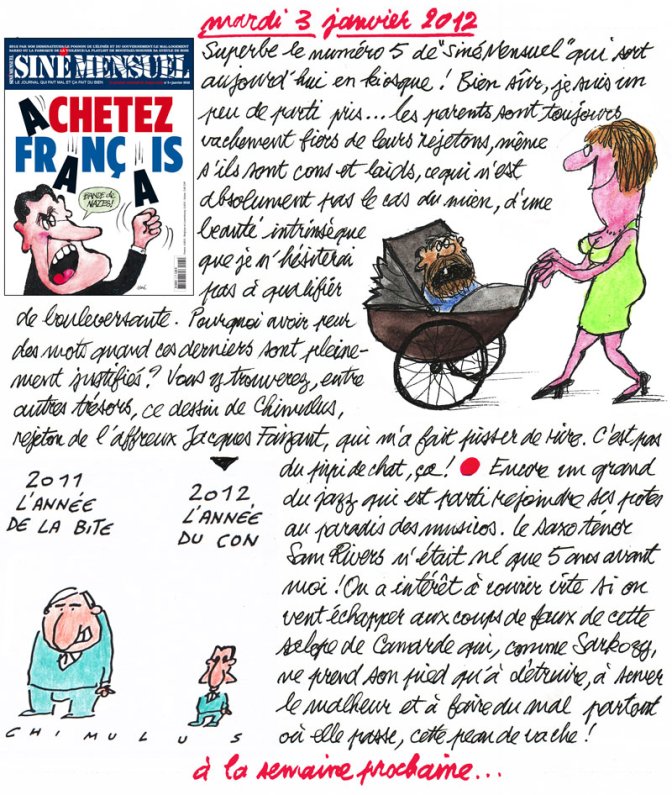 mardi 3 janvier 2012
SINÉ MENSUEL
LE JOURNAL QUI FAIT MAL ET ÇA FAIT DU BIEN
ACHETEZ
FRANÇAIS
BANDE de
NAZES!
Superbe le numéro 5 de "Siné Mensuel" qui sort
aujourd'hui en kiosque! Bien sûr, je suis un
peu de parti pris... les parents sont toujours
vachement fiers de leurs rejetons, même
s'ils sont cons et laids, ce qui n'est
absolument pas le cas du mien, d'une
beauté intrinsèque
que je n'hésiterai
pas à qualifier
de bouleversante. Pourquoi avoir peur
des mots quand ces derniers sont pleine-
ment justifiés? Vous y trouverez, entre
autres trésors, ce dessin de Chimulus,
rejeton de l'affreux Jacques Faizant, qui m'a fait pisser de rire. C'est pas
du pipi de chat, ça! ● Encore un grand
du jazz qui est parti rejoindre ses potes
au paradis des musicos. Le saxo ténor
Sam Rivers n'était né que 5 ans avant
moi! On a intérêt à courir vite si on
veut échapper aux coups de faux de cette
salope de Camarde qui, comme Sarkozy,
ne prend son pied qu'à détruire, à semer
le malheur et à faire du mal partout
où elle passe, cette peau de vache!
2011
L'ANNÉE
DE LA BITE
2012
L'ANNÉE
DU CON
CHIMULUS
à la semaine prochaine...